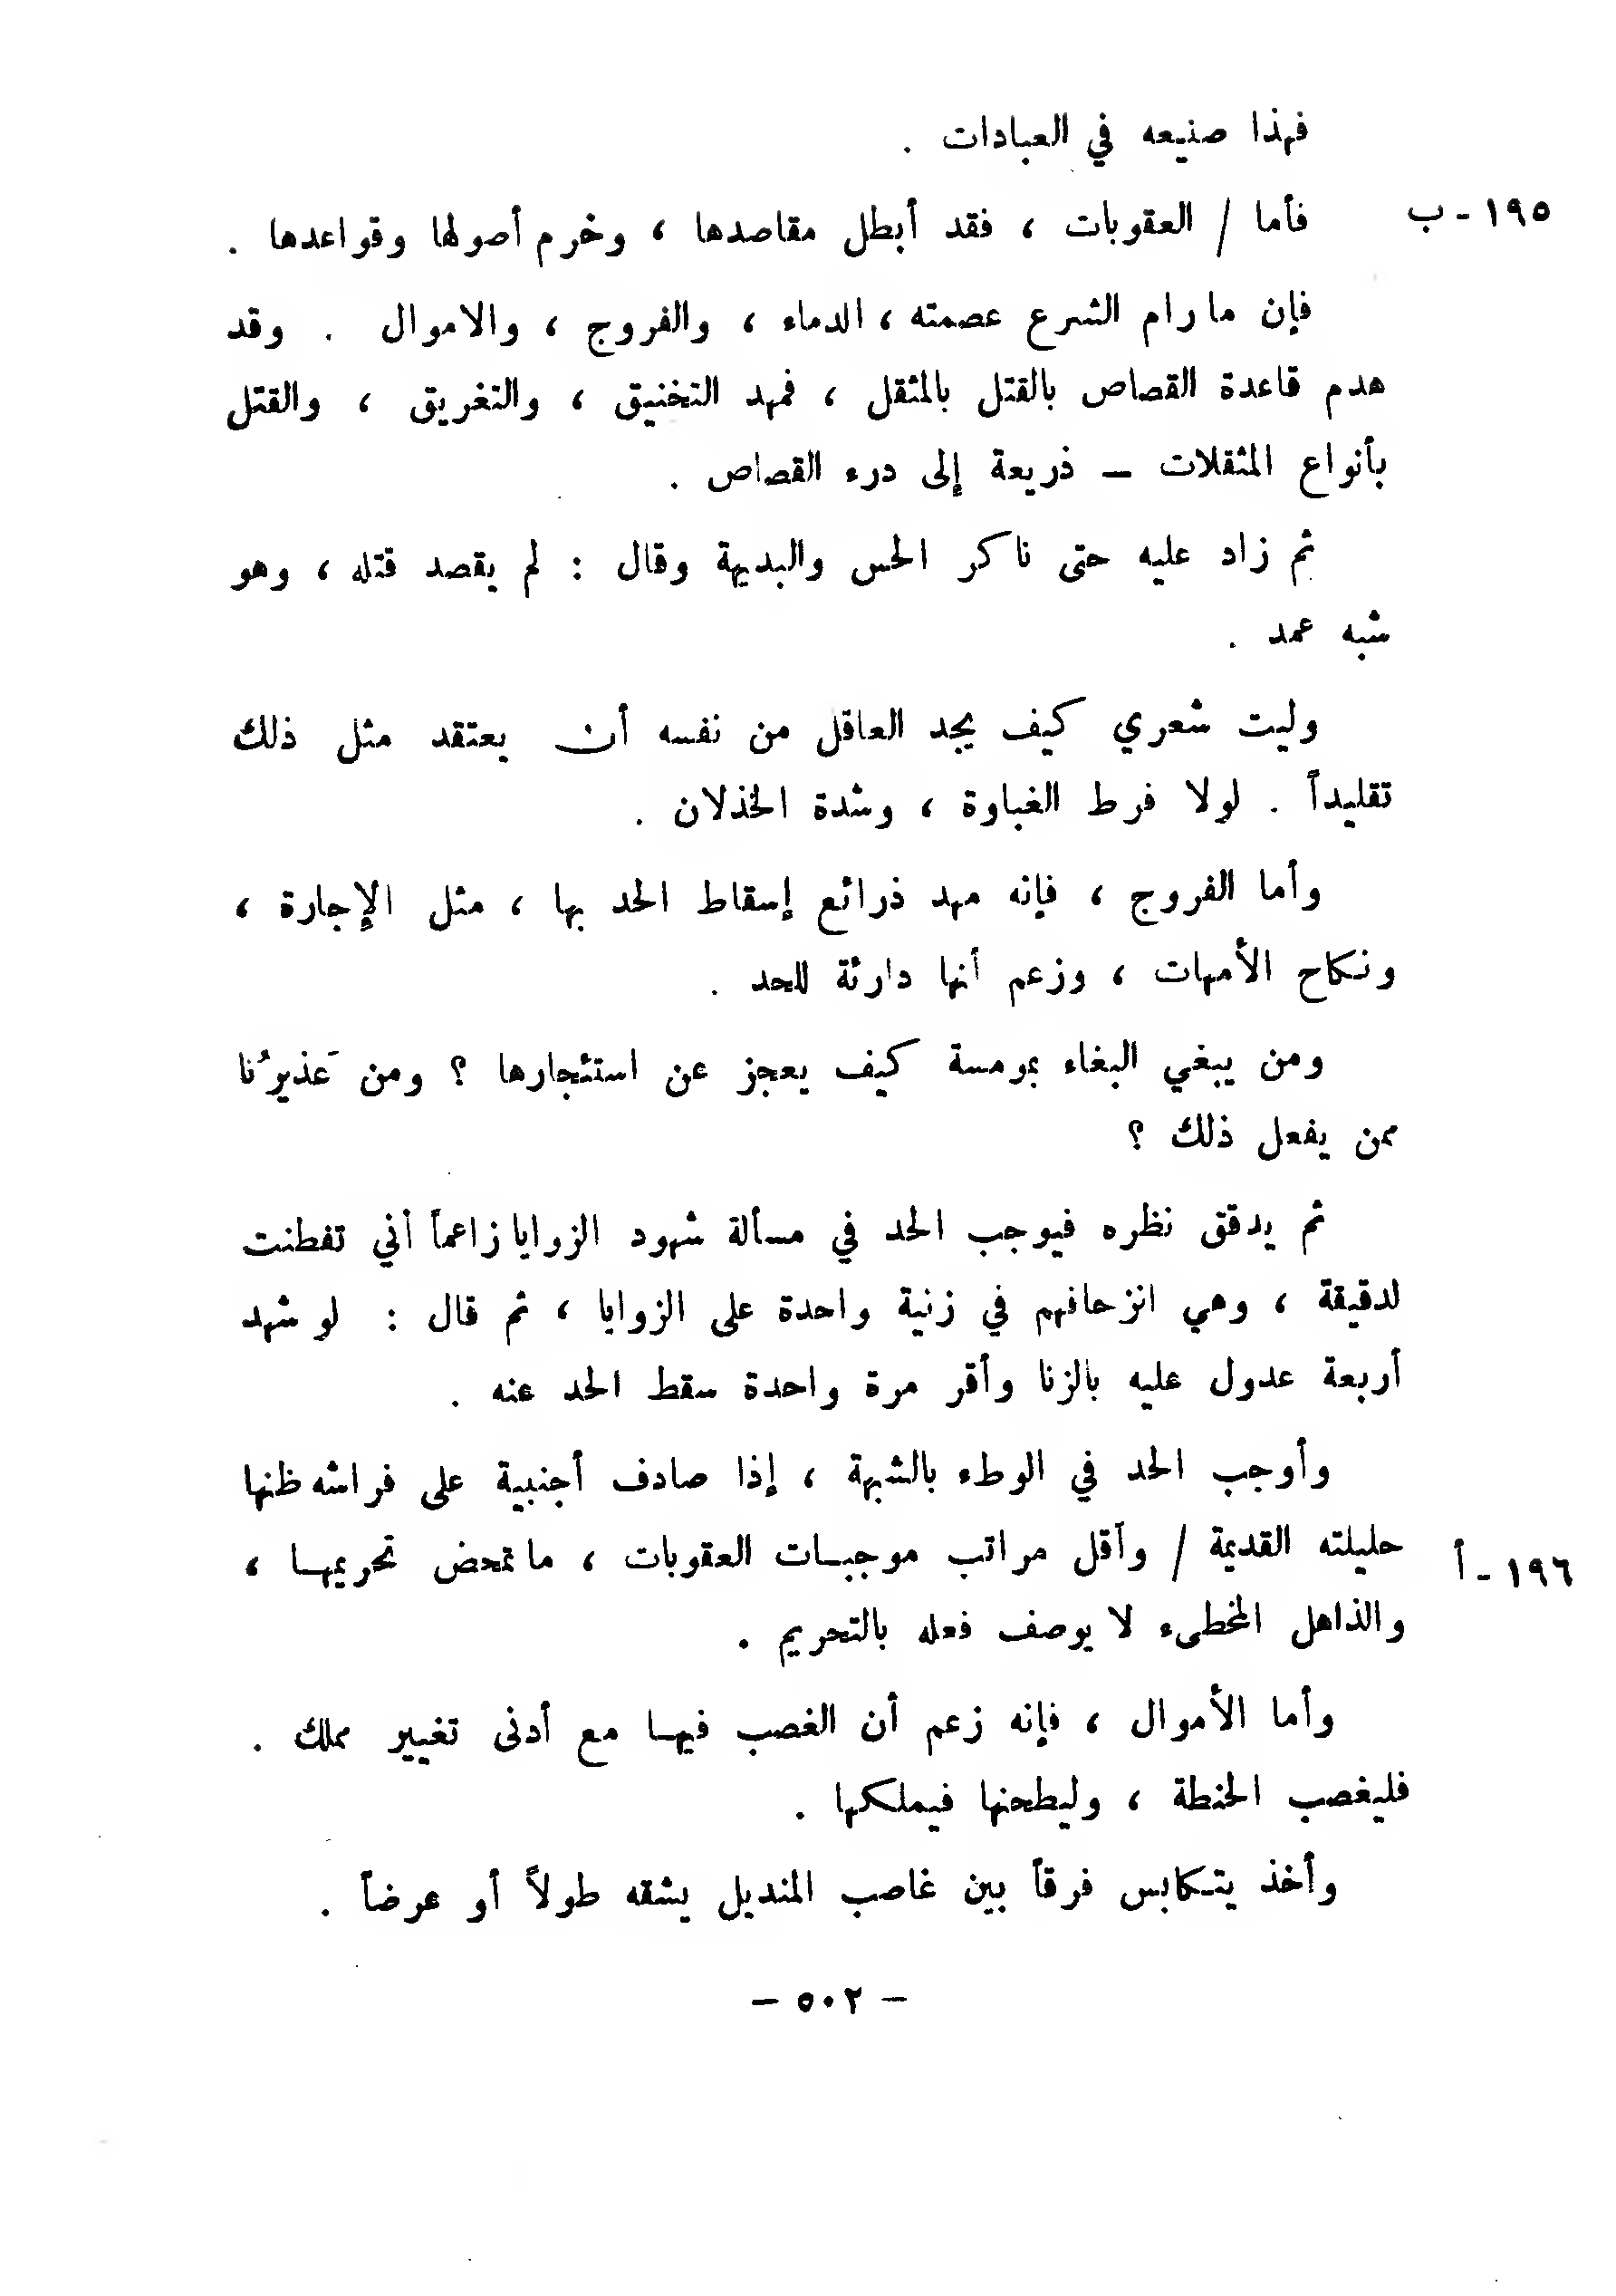 فهذا صنيعه في العبادات .
١٩٥ - ب
فأما / العقوبات ، فقد أبطل مقاصدها ، وخرم أصولها وقواعدها .
فإن ما رام الشرع عصمته ، الدماء ، والفروج ، والاموال . وقد
هدم قاعدة القصاص بالقتل بالمثقل ، فمهد التخنيق ، والتغريق ، والقتل
بأنواع المثقلات – ذريعة إلى درء القصاص .
ثم زاد عليه حتى ناكر الحس والبديهة وقال : لم يقصد قتله ، وهو
شبه عمد .
وليت شعري كيف يجد العاقل من نفسه أن يعتقد مثل ذلك
تقليداً . لولا فرط الغباوة ، وشدة الخذلان .
وأما الفروج ، فإنه مهد ذرائع إسقاط الحد بها ، مثل الإجارة ،
ونكاح الأمهات ، وزعم أنها دارئة للحد .
ومن يبغي البغاء بمومسة كيف يعجز عن استئجارها ؟ ومن عَذيرُنا
ممن يفعل ذلك ؟
ثم يدقق نظره فيوجب الحد في مسألة شهود الزوايا زاعماً أني تفطنت
لدقيقة ، وهي انزحافهم في زنية واحدة على الزوايا ، ثم قال : لو شهد
أربعة عدول عليه بالزنا وأقر مرة واحدة سقط الحد عنه .
وأوجب الحد في الوطء بالشبهة ، إذا صادف أجنبية على فراشه ظنها
حليلته القديمة / وأقل مراتب موجبات العقوبات ، ما تمحض تحريمها ،
١٩٦ - أ
والذاهل المخطىء لا يوصف فعله بالتحريم .
وأما الأموال ، فإنه زعم أن الغصب فيها مع أدنى تغيير مملك .
فليغصب الحنطة ، وليطحنها فيملكها .
وأخذ يتكابس فرقاً بين غاصب المنديل يشقه طولاً أو عرضاً .
– ٥٠٢ –